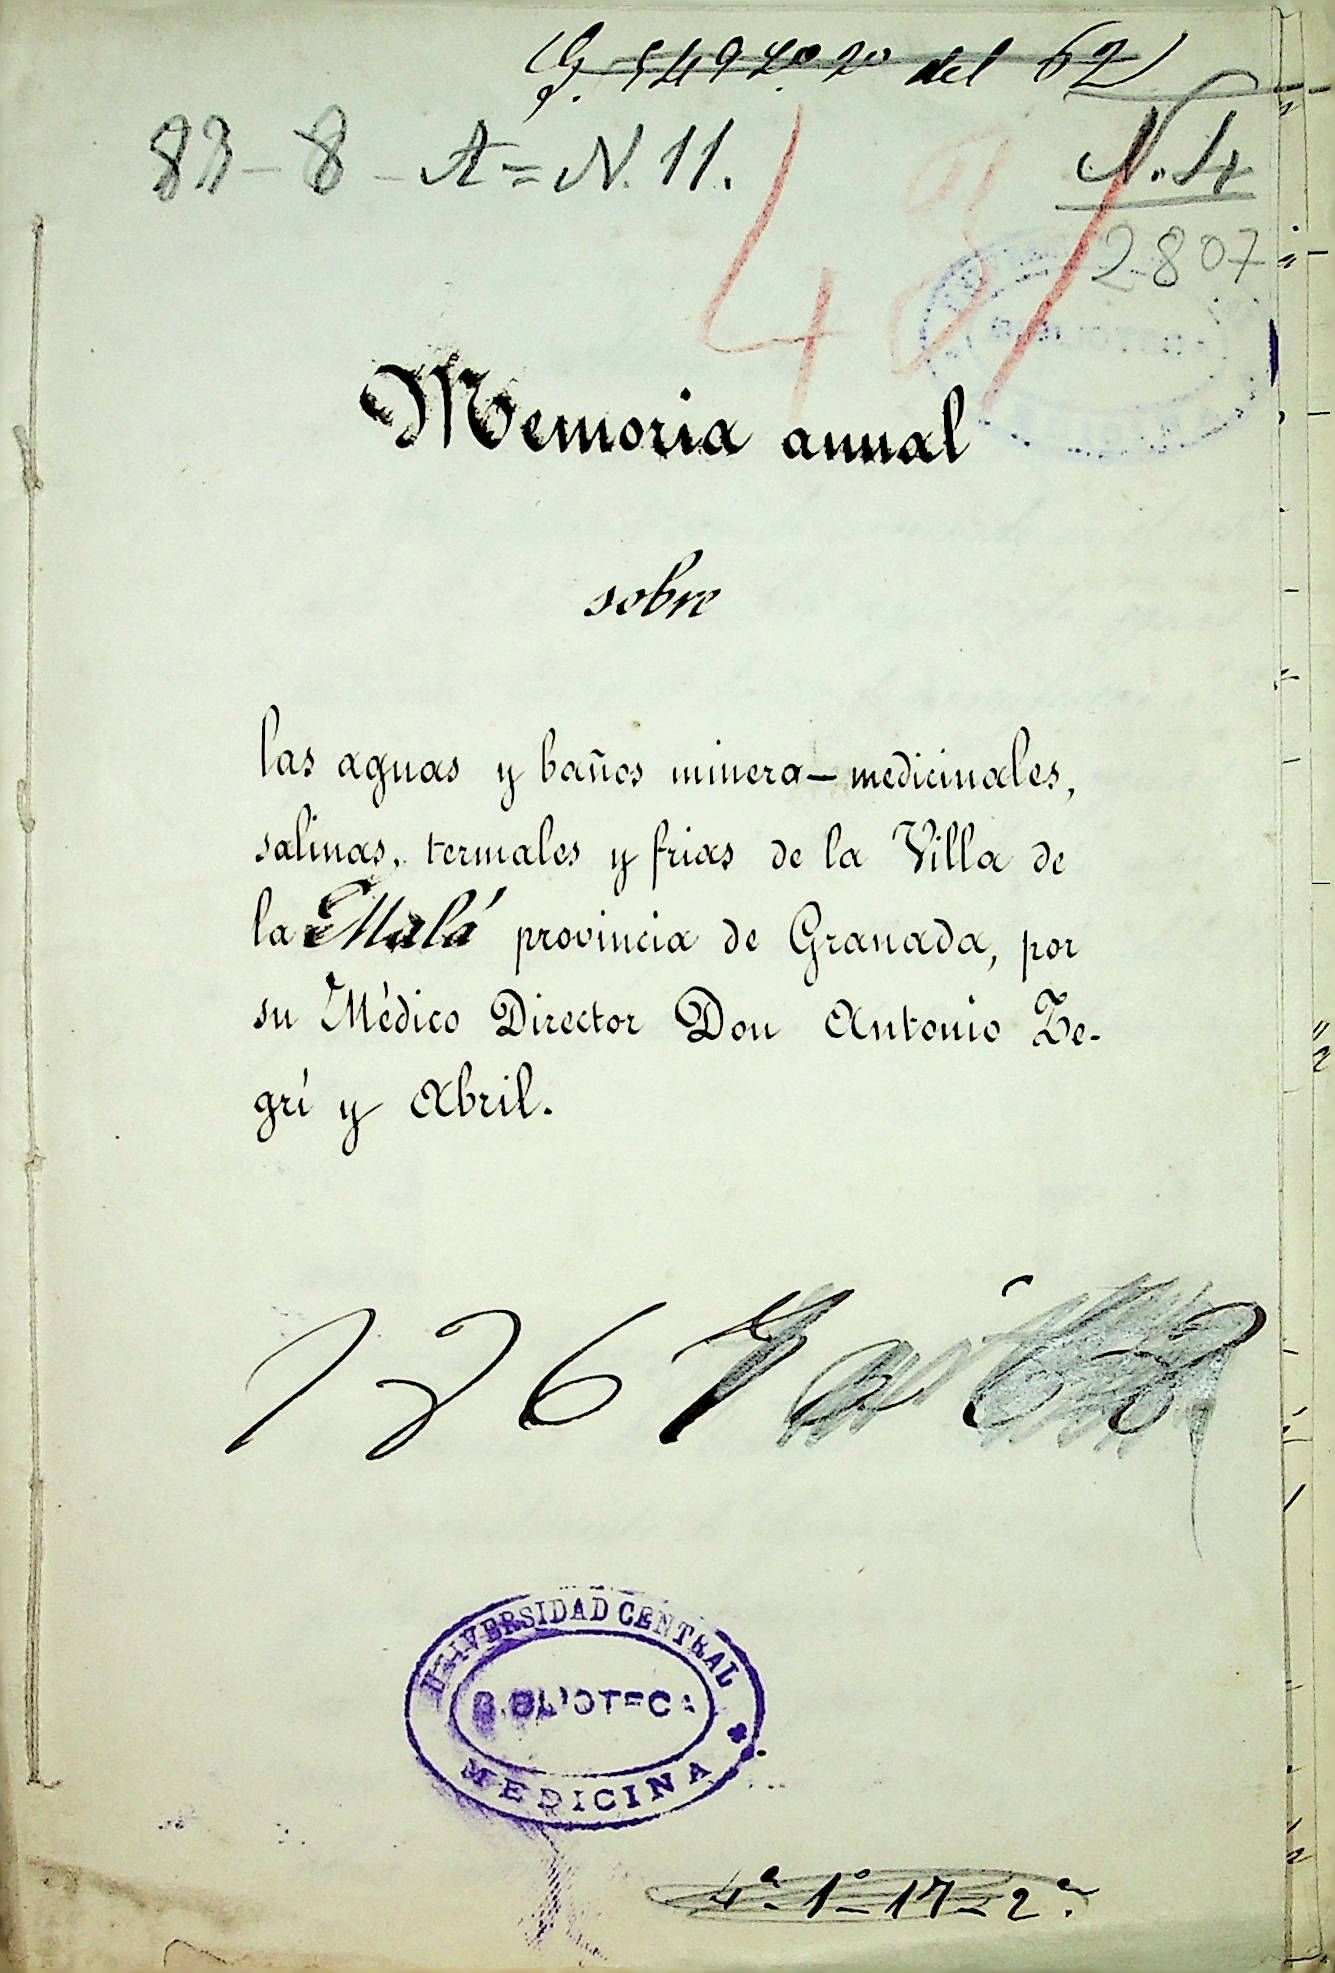 del 62
83-8-A=N. 11.
N. 4
2807
Memoria anual
sobre
las aguas y baños minero-medicinales,
salinas, termales y frias de la Villa de
la Malá provincia de Granada, por
su Médico Director Don Antonio Ze-
grí y Abril.
UNIVERSIDAD CENTRAL
BIBLIOTECA
MEDICINA
4ª-1º-17-2ª.